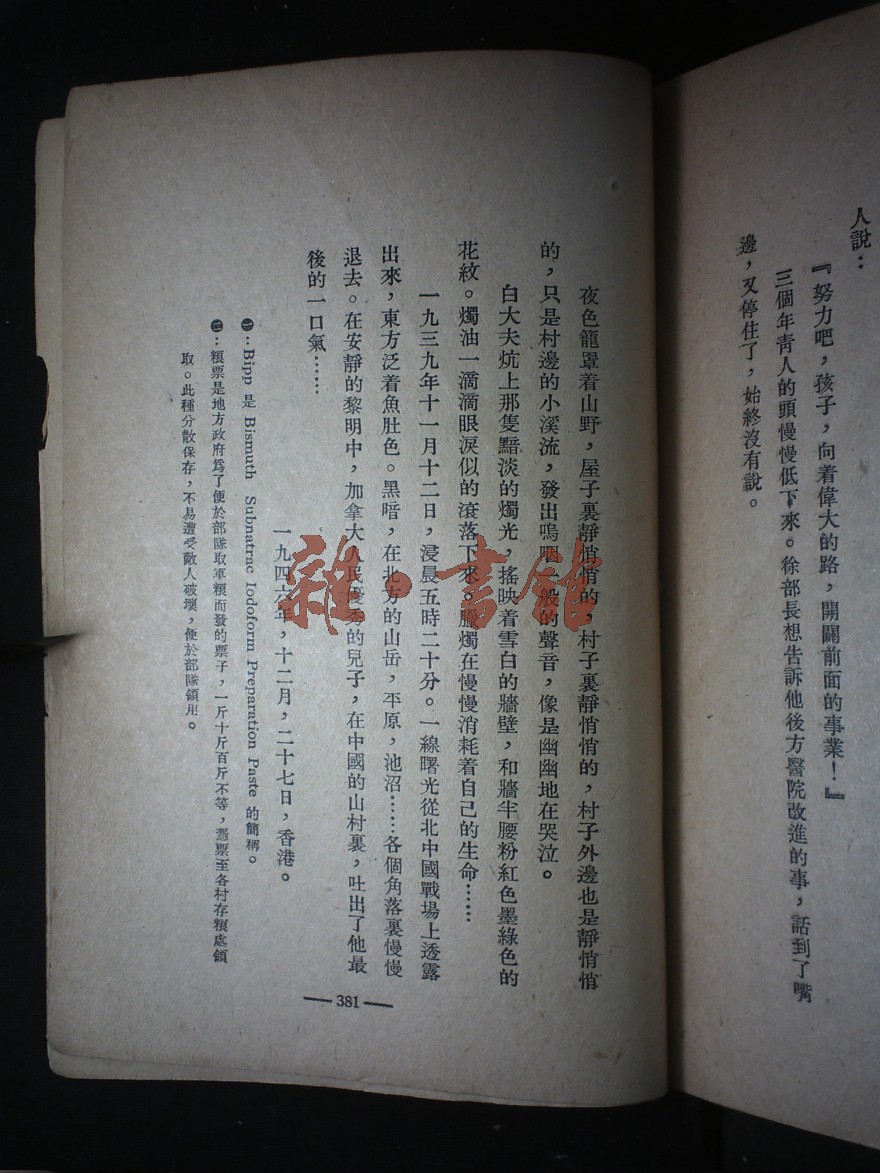 人說：
『努力吧，孩子，向着偉大的路，開闢前面的事業！』
三個年靑人的頭慢慢低下來。徐部長想告訴他後方醫院改進的事，話到了嘴
邊，又停住了，始終沒有說。
夜色籠罩着山野，屋子裏靜悄悄的，村子裏靜悄悄的，村子外邊也是靜悄悄
的，只是村邊的小溪流，發出嗚咽一般的聲音，像是幽幽地在哭泣。
白大夫炕上那隻黯淡的燭光，搖映着雪白的牆壁，和牆半腰粉紅色墨綠色的
花紋。燭油一滴滴眼淚似的滾落下來。臘燭在慢慢消耗着自己的生命……
一九三九年十一月十二日，浸晨五時二十分。一線曙光從北中國戰場上透露
出來，東方泛着魚肚色。黑暗，在北方的山岳，平原，池沼……各個角落裏慢慢
退去。在安靜的黎明中，加拿大人民優秀的兒子，在中國的山村裏，吐出了他最
後的一口氣……
一九四六年，十二月，二十七日，香港。
㊀：Bipp 是 Bismuth Subnatrac Iodoform Preparation Paste 的簡稱。
㊁：粮票是地方政府爲了便於部隊取軍粮而發的票子，一斤十斤百斤不等，憑票至各村存粮處領
取。此種分散保存，不易遭受敵人破壞，便於部隊領用。
— 381 —
雜·書館